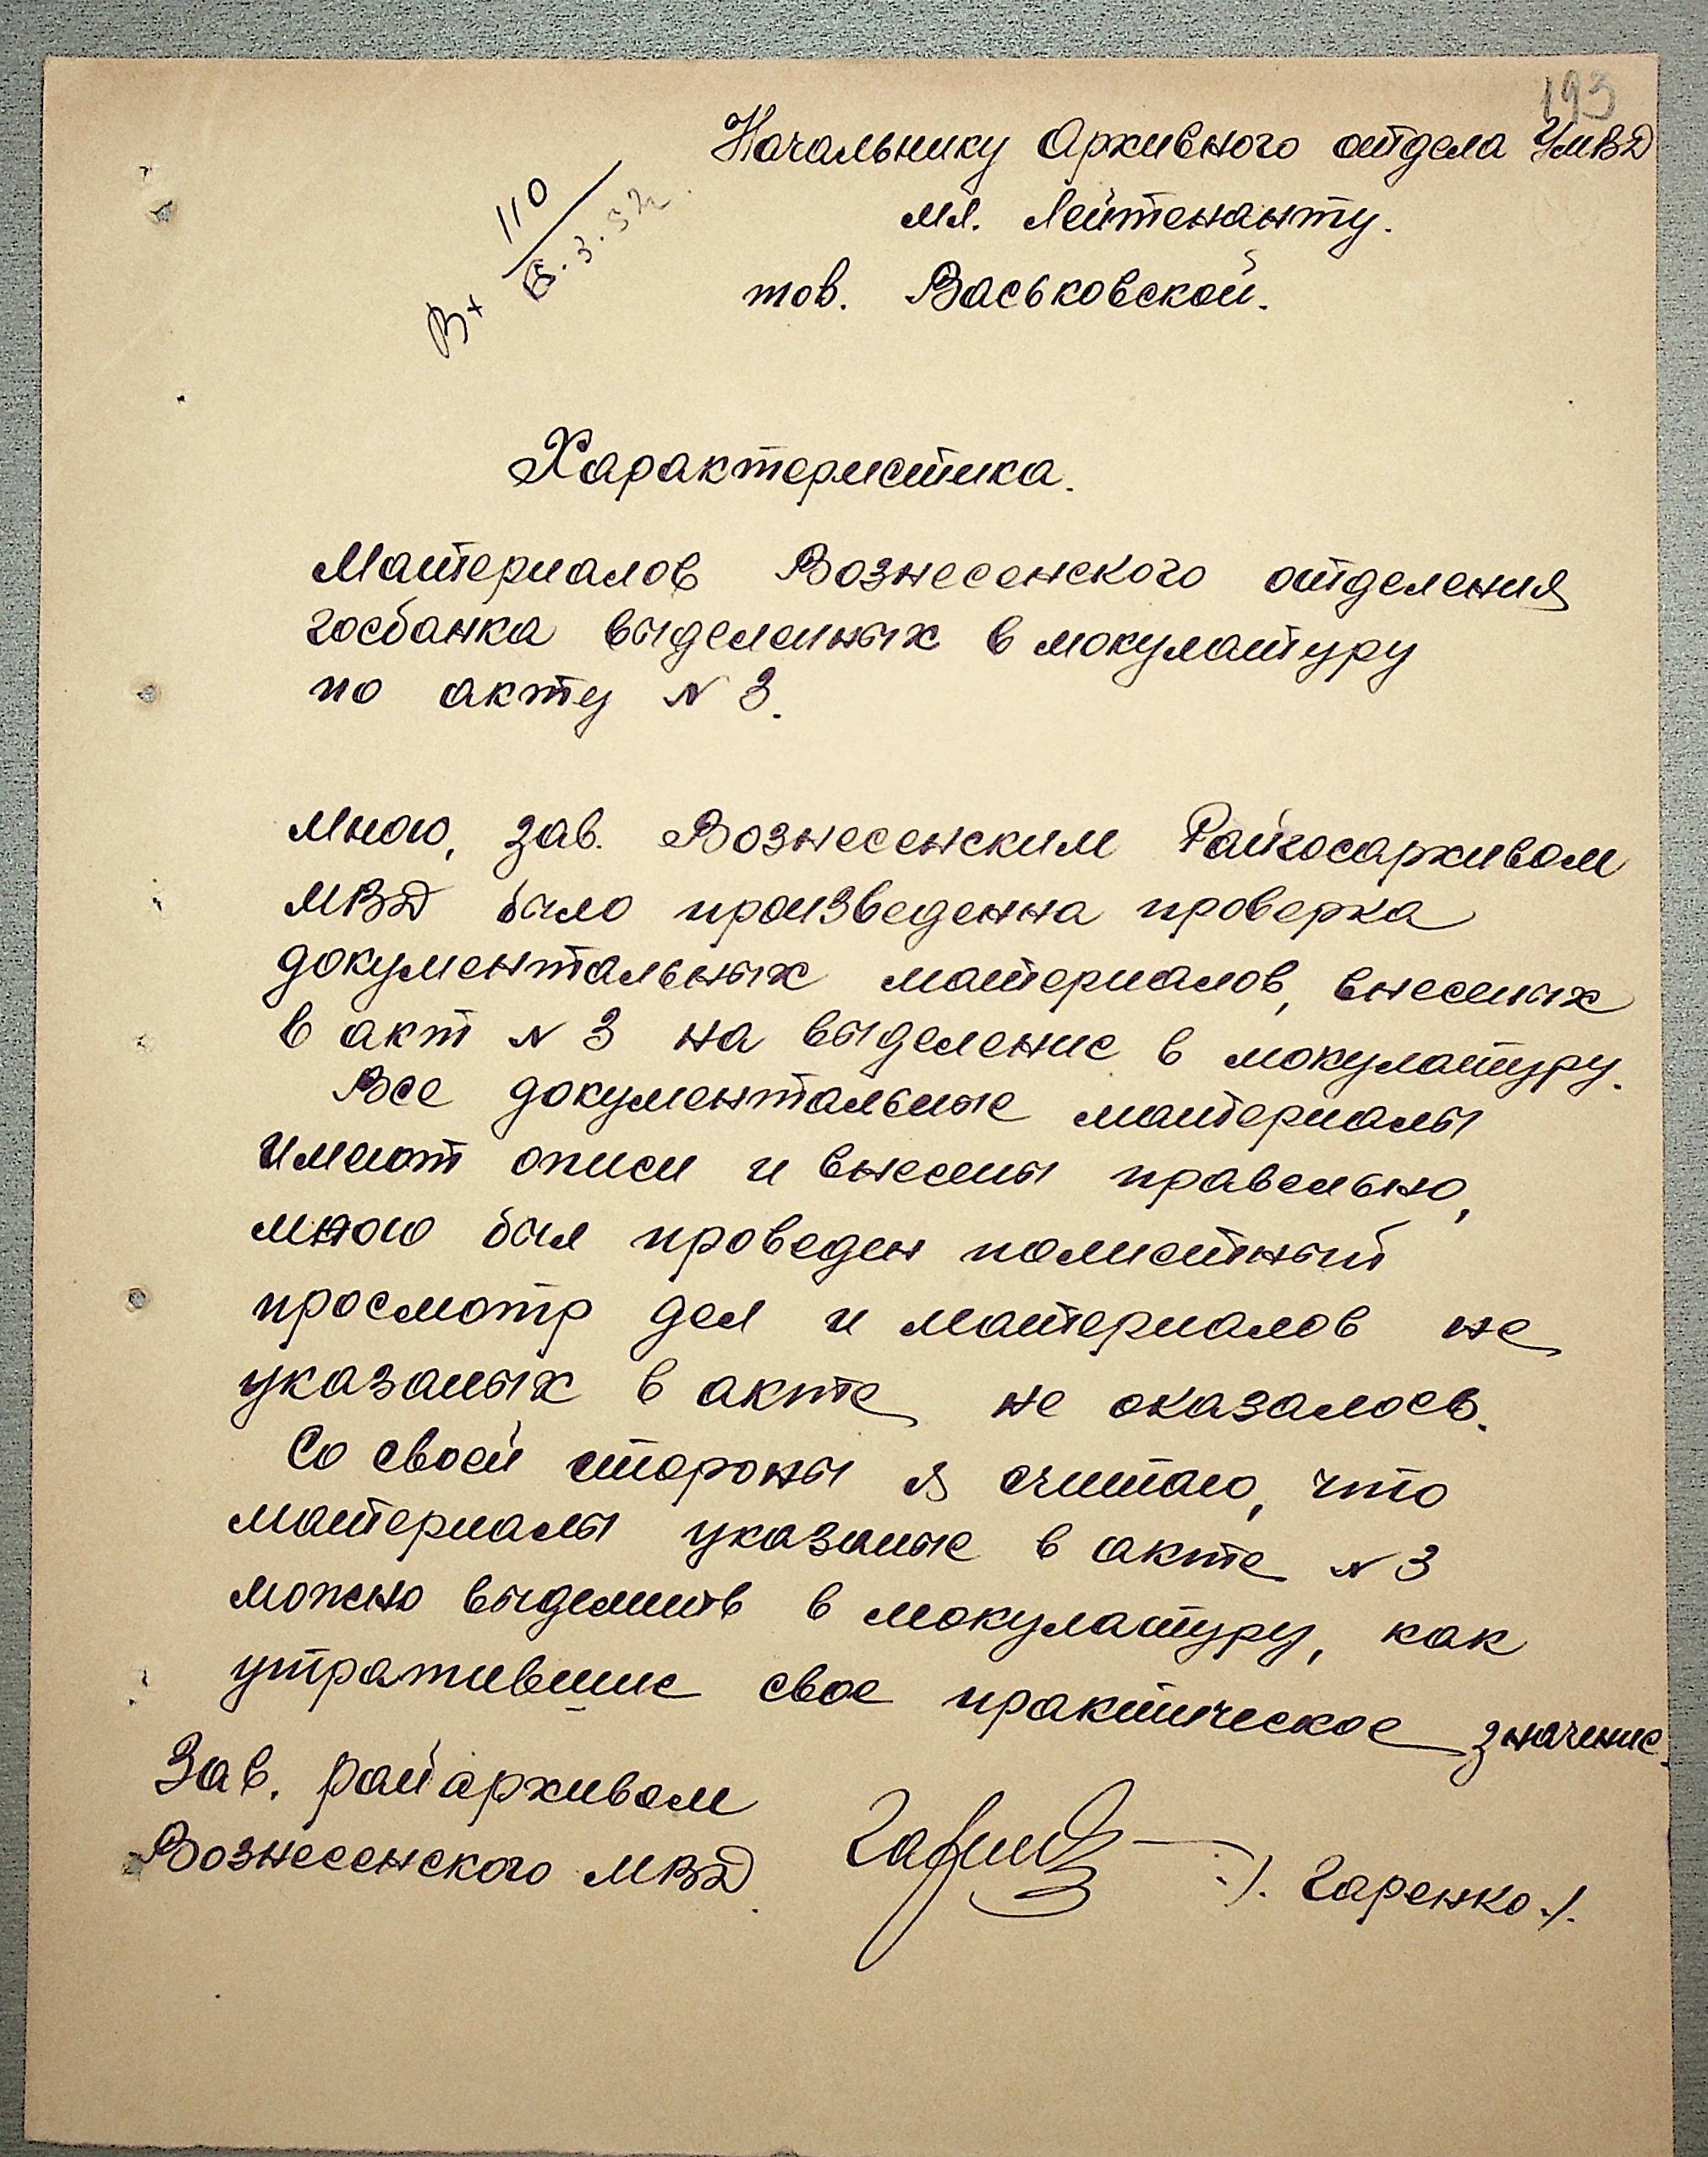 193
Начальнику Архивного отдела УМВД
мл. Лейтенанту.
тов. Васьковской.
Вх 110
3.52
Характеристика.
Материалов Вознесенского отделения
госбанка выделеных в мокулатуру
по акту N 3.
Мною, зав. Вознесенским Райгосархивом
МВД было произведенна проверка
документальных материалов, внесеных
в акт N 3 на выделение в мокулатуру.
Все документальные материалы
имеют описи и внесены правельно,
мною был проведен полистный
просмотр дел и материалов не
указаных в акте не оказалось.
Со своей стороны я считаю, что
материалы указаные в акте N 3
можно выделить в мокулатуру, как
утратившие свое практическое значение.
Зав. райархивом
Вознесенского МВД. /. Гаренко ./.